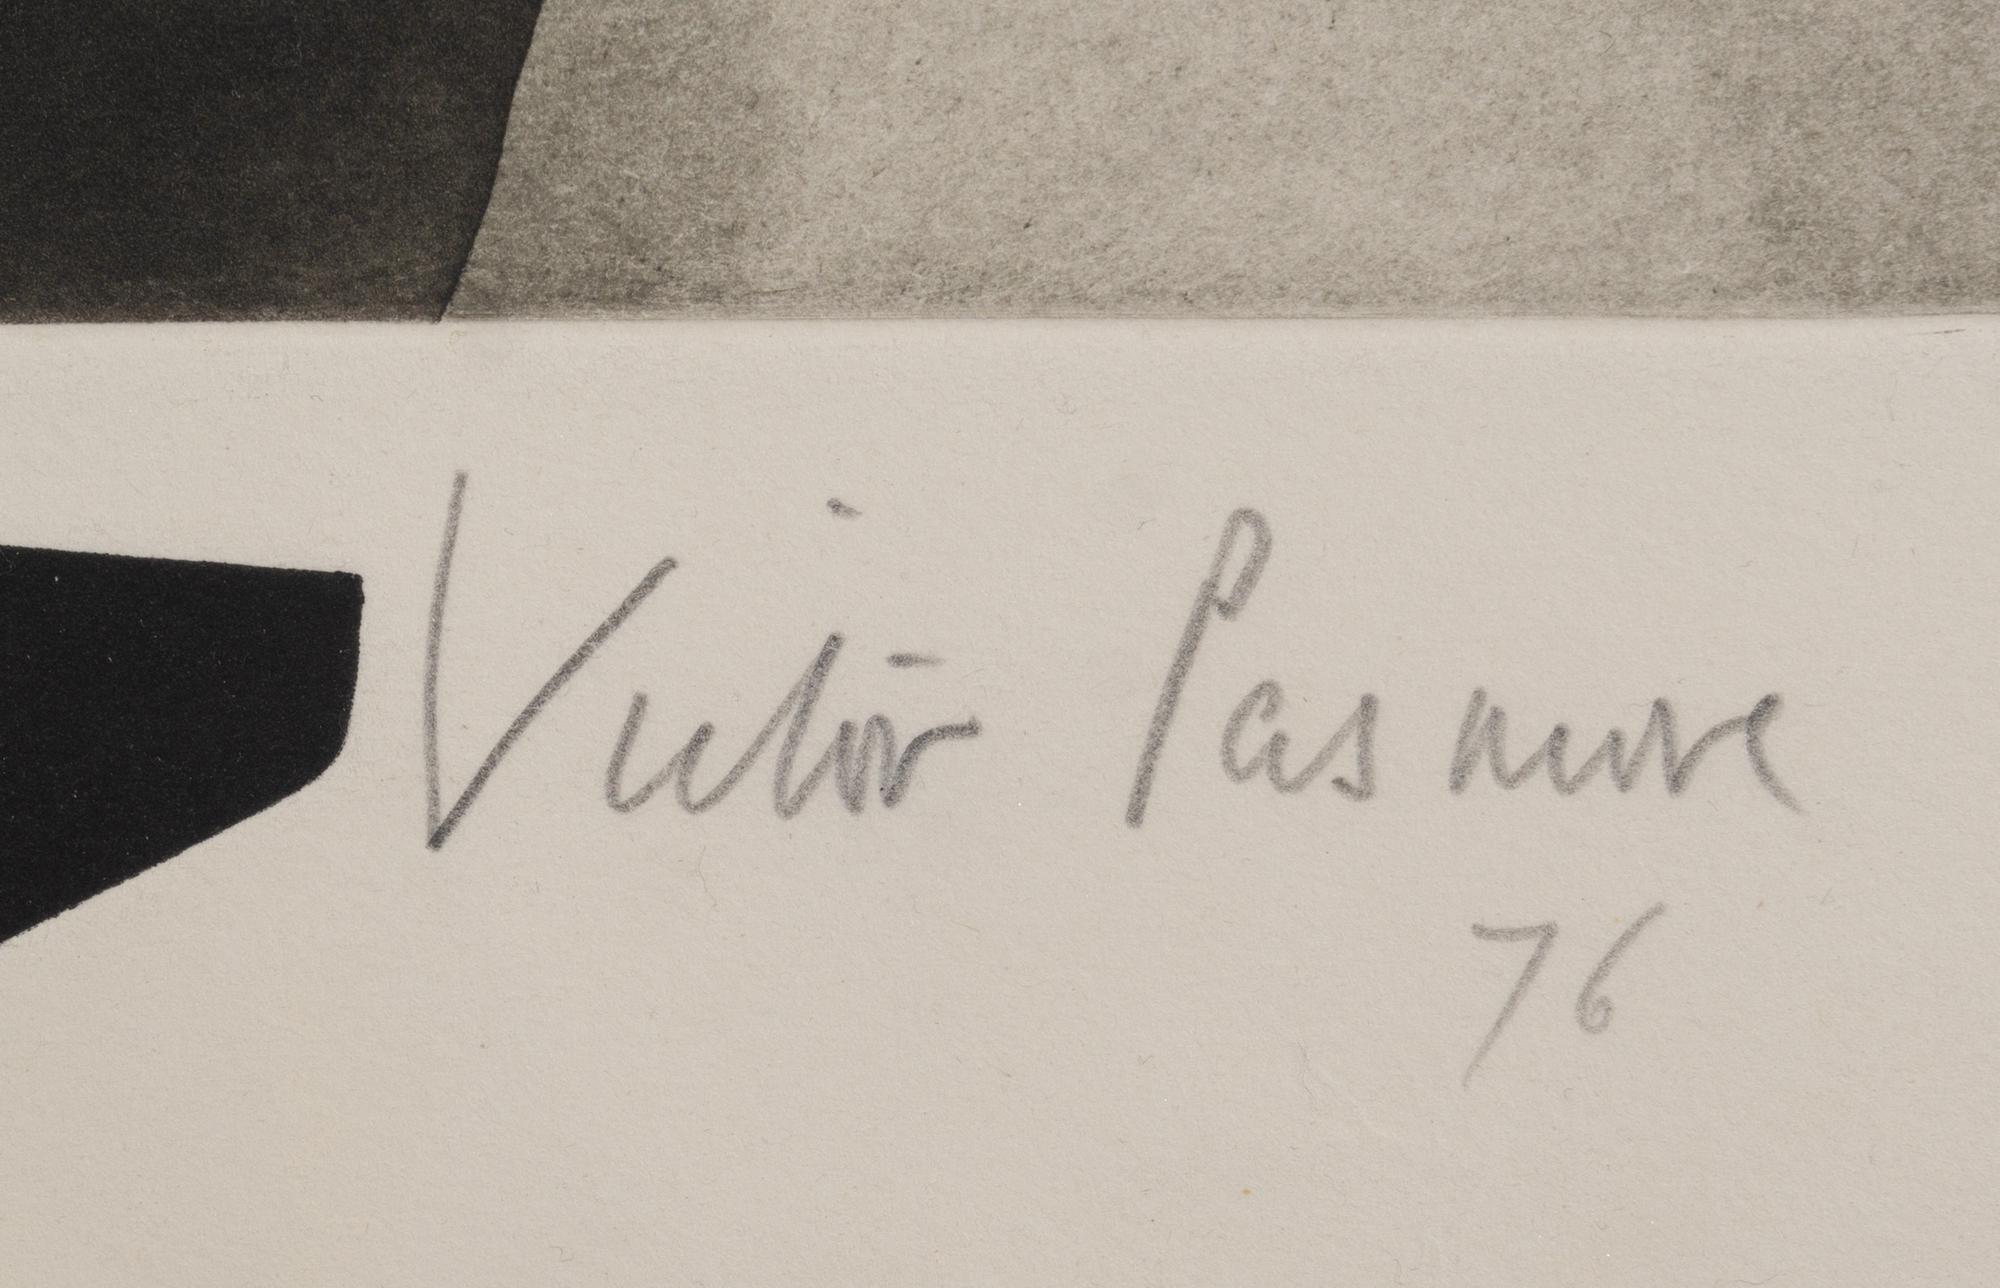 Victor Pasmore
76